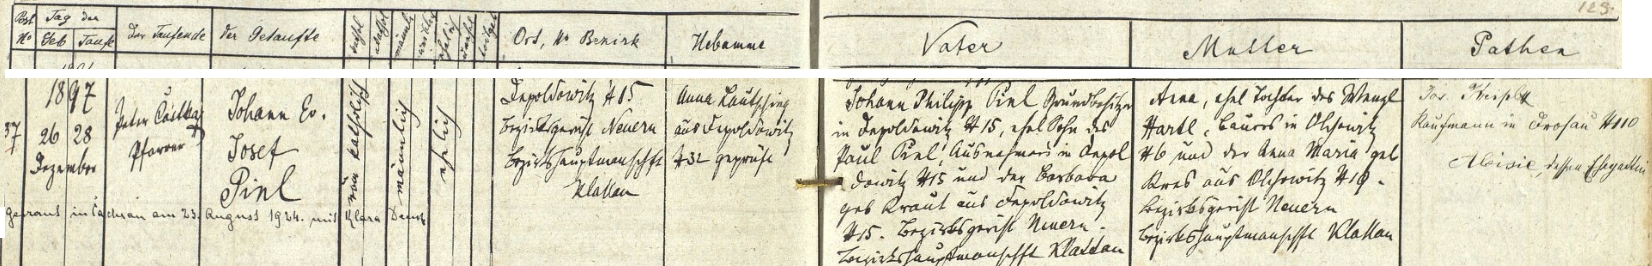 123.
Post No | Tag der Geb | Tauf | Der Taufende | Der Getaufte | kathol | männl | weibl | ehelich | Ort, No Bezirk | Hebamme | Vater | Mutter | Pathen
1897
37 26 28 Dezember
Peter
Pfarrer
Johann Ev.
Josef
Pinl
röm katholisch
männlich
ehelich
Depoldowitz #15
Bezirksgericht Neuern
Bezirkshauptmanschft
Klattau
Anna Lautsching
aus Depoldowitz
#32 geprüft
Johann Philipp Pinl Grundbesitzer
in Depoldowitz #15, ehel Sohn des
Paul Pinl, Ausnehmers in Depol
dowitz #15 und der Barbara
geb Kraut aus Depoldowitz
#15. Bezirksgericht Neuern.
Bezirkshauptmanschft Klattau
Anna, ehel Tochter des Wenzl
Hartl, Bauers in Olchowitz
#6 und der Anna Maria geb
aus Olchowitz #19.
Bezirksgericht Neuern
Bezirkshauptmanschft Klattau
Jos.
Kaufmann in Drosau #110
Aloisie, dessen Ehegattin
Getraut in Tachau am 23. August 1924. mit Klara